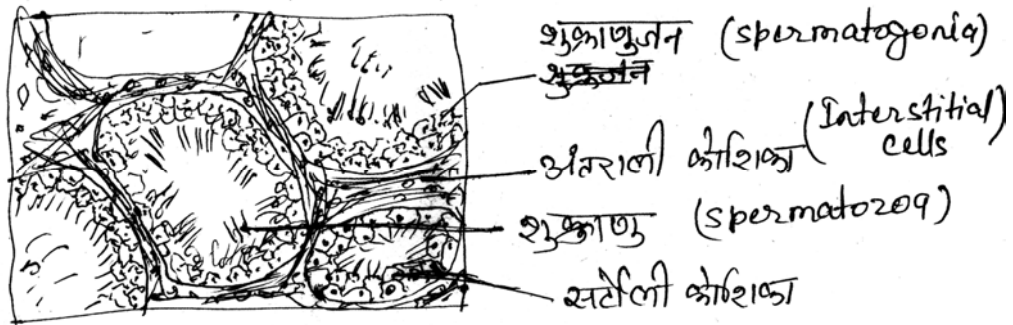 शुक्राणुजन (spermatogonia)
शुक्रजन
अंतराली कोशिका (Interstitial cells)
शुक्राणु (spermatozoa)
सर्टोली कोशिका